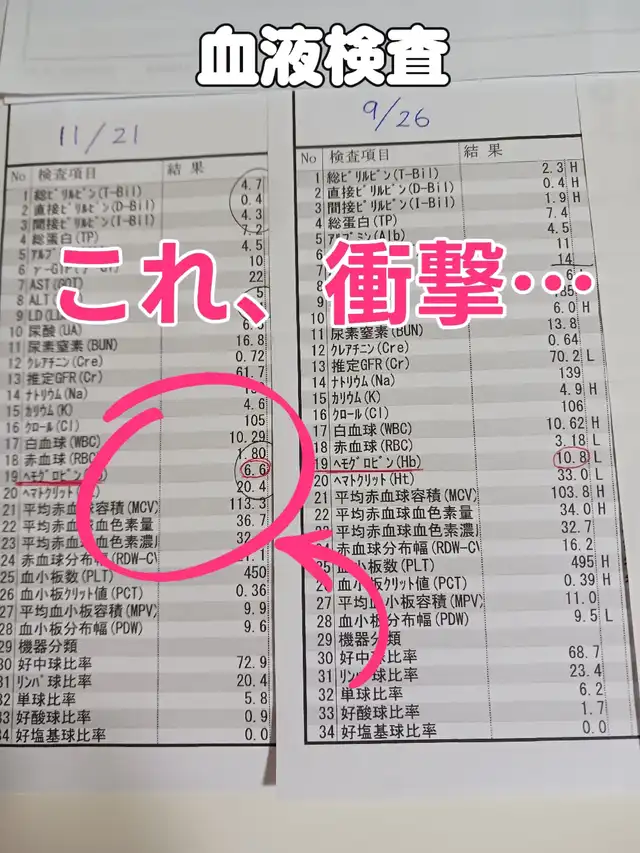 血液検査
11/21
No 検査項目 結果
1 総ビリルビン(T-Bil) 4.7
2 直接ビリルビン(D-Bil) 0.4
3 間接ビリルビン(I-Bil) 4.3
4 総蛋白(TP) 7.2
4.5
10
7 AST(GOT) 22
8 ALT
9 LD
10 尿酸(UA)
11 尿素窒素(BUN) 16.8
12 クレアチニン(Cre) 0.72
13 推定GFR(Cr) 61.7
14 ナトリウム(Na)
15 カリウム(K) 4.6
16 クロール(Cl) 105
17 白血球(WBC) 10.29
18 赤血球(RBC) 1.80
19 ヘモグロビン 6.6
20 ヘマトクリット 20.4
21 平均赤血球容積(MCV) 113.3
22 平均赤血球血色素量 36.7
23 平均赤血球血色素濃 32
24 赤血球分布幅(RDW-CV
25 血小板数(PLT) 450
26 血小板クリット値(PCT) 0.36
27 平均血小板容積(MPV) 9.9
28 血小板分布幅(PDW) 9.6
29 機器分類
30 好中球比率 72.9
31 リンパ球比率 20.4
32 単球比率 5.8
33 好酸球比率 0.9
34 好塩基球比率 0.0
9/26
No 検査項目 結果
1 総ビリルビン(T-Bil) 2.3 H
2 直接ビリルビン(D-Bil) 0.4 H
3 間接ビリルビン(I-Bil) 1.9 H
4 総蛋白(TP) 7.4
5 アルブミン(Alb) 4.5
11
14
6.0 H
11 尿素窒素(BUN) 13.8
12 クレアチニン(Cre) 0.64
13 推定GFR(Cr) 70.2 L
14 ナトリウム(Na) 139
15 カリウム(K) 4.9 H
16 クロール(Cl) 106
17 白血球(WBC) 10.62 H
18 赤血球(RBC) 3.18 L
19 ヘモグロビン(Hb) 10.8 L
20 ヘマトクリット(Ht) 33.0 L
21 平均赤血球容積(MCV) 103.8 H
22 平均赤血球血色素量 34.0 H
平均赤血球血色素濃 32.7
赤血球分布幅(RDW-CV 16.2
25 血小板数(PLT) 495 H
血小板クリット値(PCT) 0.39 H
27 平均血小板容積(MPV) 11.0
28 血小板分布幅(PDW) 9.5 L
29 機器分類
30 好中球比率 68.7
31 リンパ球比率 23.4
32 単球比率 6.2
33 好酸球比率 1.7
34 好塩基球比率 0.0
これ、衝撃…